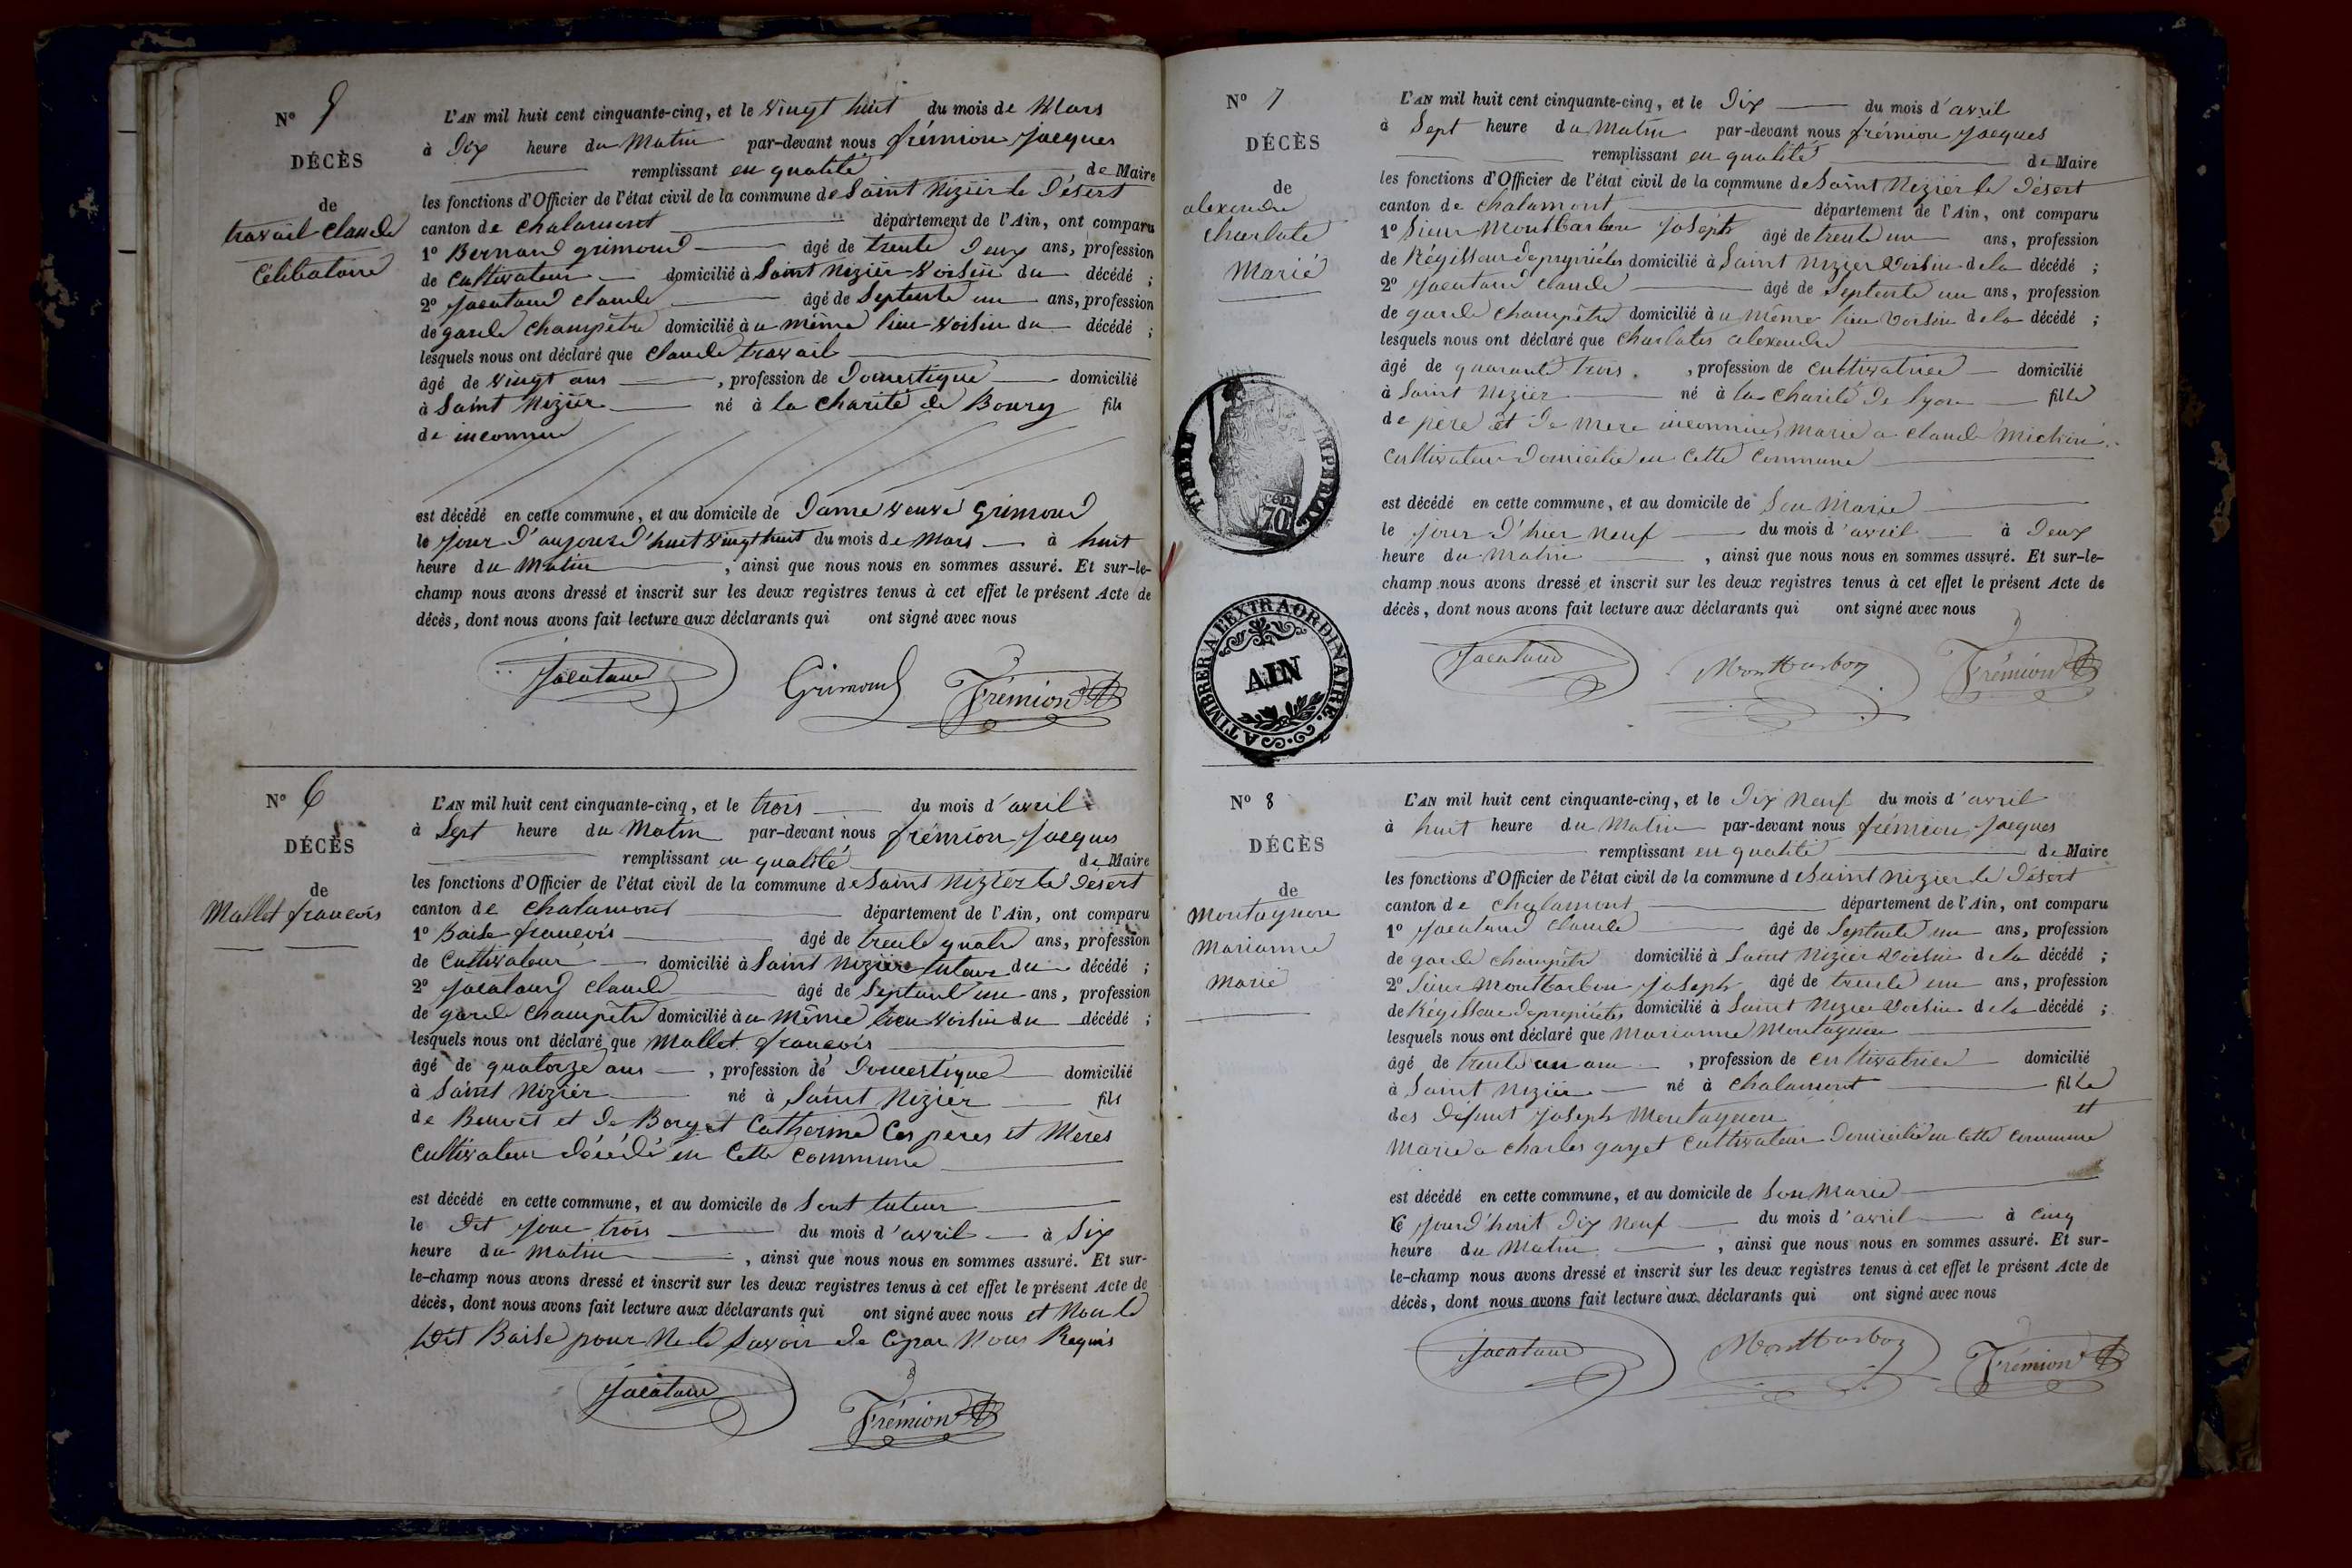 N° 5
DÉCÈS
de
travail claude
Célibataire
L'AN mil huit cent cinquante-cinq, et le vingt huit du mois de Mars
à Dix heure du Matin par-devant nous frémion jacques
remplissant en qualité de Maire
les fonctions d'Officier de l'état civil de la commune de Saint Nizier le Désert
canton de chalamont département de l'Ain, ont comparu
1° Bernard grimoud âgé de trente Deux ans, profession
de Cultivateur domicilié à Saint Nizier Voisin du décédé ;
2° Jacataud claude âgé de Septente un ans, profession
de garde Champêtre domicilié à u même lieu Voisin du décédé ;
lesquels nous ont déclaré que claude travail
âgé de vingt ans , profession de Domestique domicilié
à Saint Nizier né à la Charité de Bourg fils
de inconnu
est décédé en cette commune, et au domicile de Dame veuve Grimoud
le Jour D'aujourd'huit vingt huit du mois de Mars à huit
heure du Matin , ainsi que nous nous en sommes assuré. Et sur-le-
champ nous avons dressé et inscrit sur les deux registres tenus à cet effet le présent Acte de
décès, dont nous avons fait lecture aux déclarants qui ont signé avec nous
Jacataud Grimoud Frémion
N° 6
DÉCÈS
de
Mallet francois
L'AN mil huit cent cinquante-cinq, et le trois du mois d'avril
à Sept heure du Matin par-devant nous frémion jacques
remplissant en qualité de Maire
les fonctions d'Officier de l'état civil de la commune de Saint Nizier le Désert
canton de chalamont département de l'Ain, ont comparu
1° Baise francois âgé de trente quatre ans, profession
de Cultivateur domicilié à Saint Nizier tuteur du décédé ;
2° Jacataud claude âgé de Septente un ans, profession
de garde Champêtre domicilié à u Même lieu Voisin du décédé ;
lesquels nous ont déclaré que Mallet francois
âgé de quatorze ans , profession de Domestique domicilié
à Saint Nizier né à Saint Nizier fils
de Benoit et de Boryet Catherine Ces pères et Mères
Cultivateur décédé en Cette Commune
est décédé en cette commune, et au domicile de Sont tuteur
le Dit Jour trois du mois d'avril à Six
heure du matin , ainsi que nous nous en sommes assuré. Et sur-
le-champ nous avons dressé et inscrit sur les deux registres tenus à cet effet le présent Acte de
décès, dont nous avons fait lecture aux déclarants qui ont signé avec nous et Non le
Dit Baise pour Ne le Savoir de Ce par Nous Requis
Jacataud Frémion
N° 7
DÉCÈS
de
alexendre
Charlate
Marié
TIMBRE IMPERIAL
cen.
70
A TIMBRER A L'EXTRAORDINAIRE.
AIN
L'AN mil huit cent cinquante-cinq, et le Dix du mois d'avril
à Sept heure du Matin par-devant nous frémion jacques
remplissant en qualité de Maire
les fonctions d'Officier de l'état civil de la commune de Saint Nizier le Désert
canton de Chalamont département de l'Ain, ont comparu
1° Sieur Montbarbon Joseph âgé de trente un ans, profession
de Régisseur de propriétés domicilié à Saint Nizier Voisin de la décédé ;
2° Jacataud Claude âgé de Septente un ans, profession
de garde Champêtre domicilié à u Même lieu Voisin de la décédé ;
lesquels nous ont déclaré que Charlates alexendre
âgé de quarante trois , profession de Cultivatrice domicilié
à Saint Nizier né à la Charité de Lyon fille
de père et de Mere inconnue, marie a claude Michon
Cultivateur Domicilié en Cette Commune
est décédé en cette commune, et au domicile de Son Marie
le jour d'hier neuf du mois d'avril à Deux
heure du Matin , ainsi que nous nous en sommes assuré. Et sur-le-
champ nous avons dressé et inscrit sur les deux registres tenus à cet effet le présent Acte de
décès, dont nous avons fait lecture aux déclarants qui ont signé avec nous
Jacataud Montbarbon Frémion
N° 8
DÉCÈS
de
Montagnon
Marianne
Marié
L'AN mil huit cent cinquante-cinq, et le Dix Neuf du mois d'avril
à huit heure du Matin par-devant nous frémion jacques
remplissant en qualité de Maire
les fonctions d'Officier de l'état civil de la commune d e Saint Nizier le Désert
canton de Chalamont département de l'Ain, ont comparu
1° Jacataud Claude âgé de Septente un ans, profession
de garde Champêtre domicilié à Saint Nizier Voisin de la décédé ;
2° Sieur Montbarbon Joseph âgé de trente un ans, profession
de Régisseur de propriétés domicilié à Saint Nizier Voisin de la décédé ;
lesquels nous ont déclaré que Marianne Montagnon
âgé de trente un ans , profession de Cultivatrice domicilié
à Saint Nizier né à Chalamont fille
des Défunt Joseph Montagnon et
Marie a charles gayet Cultivateur Domicilié en Cette Commune
est décédé en cette commune, et au domicile de Son Marie
le jour d'huit Dix Neuf du mois d'avril à Cinq
heure du Matin , ainsi que nous nous en sommes assuré. Et sur-
le-champ nous avons dressé et inscrit sur les deux registres tenus à cet effet le présent Acte de
décès, dont nous avons fait lecture aux déclarants qui ont signé avec nous
Jacataud Montbarbon Frémion